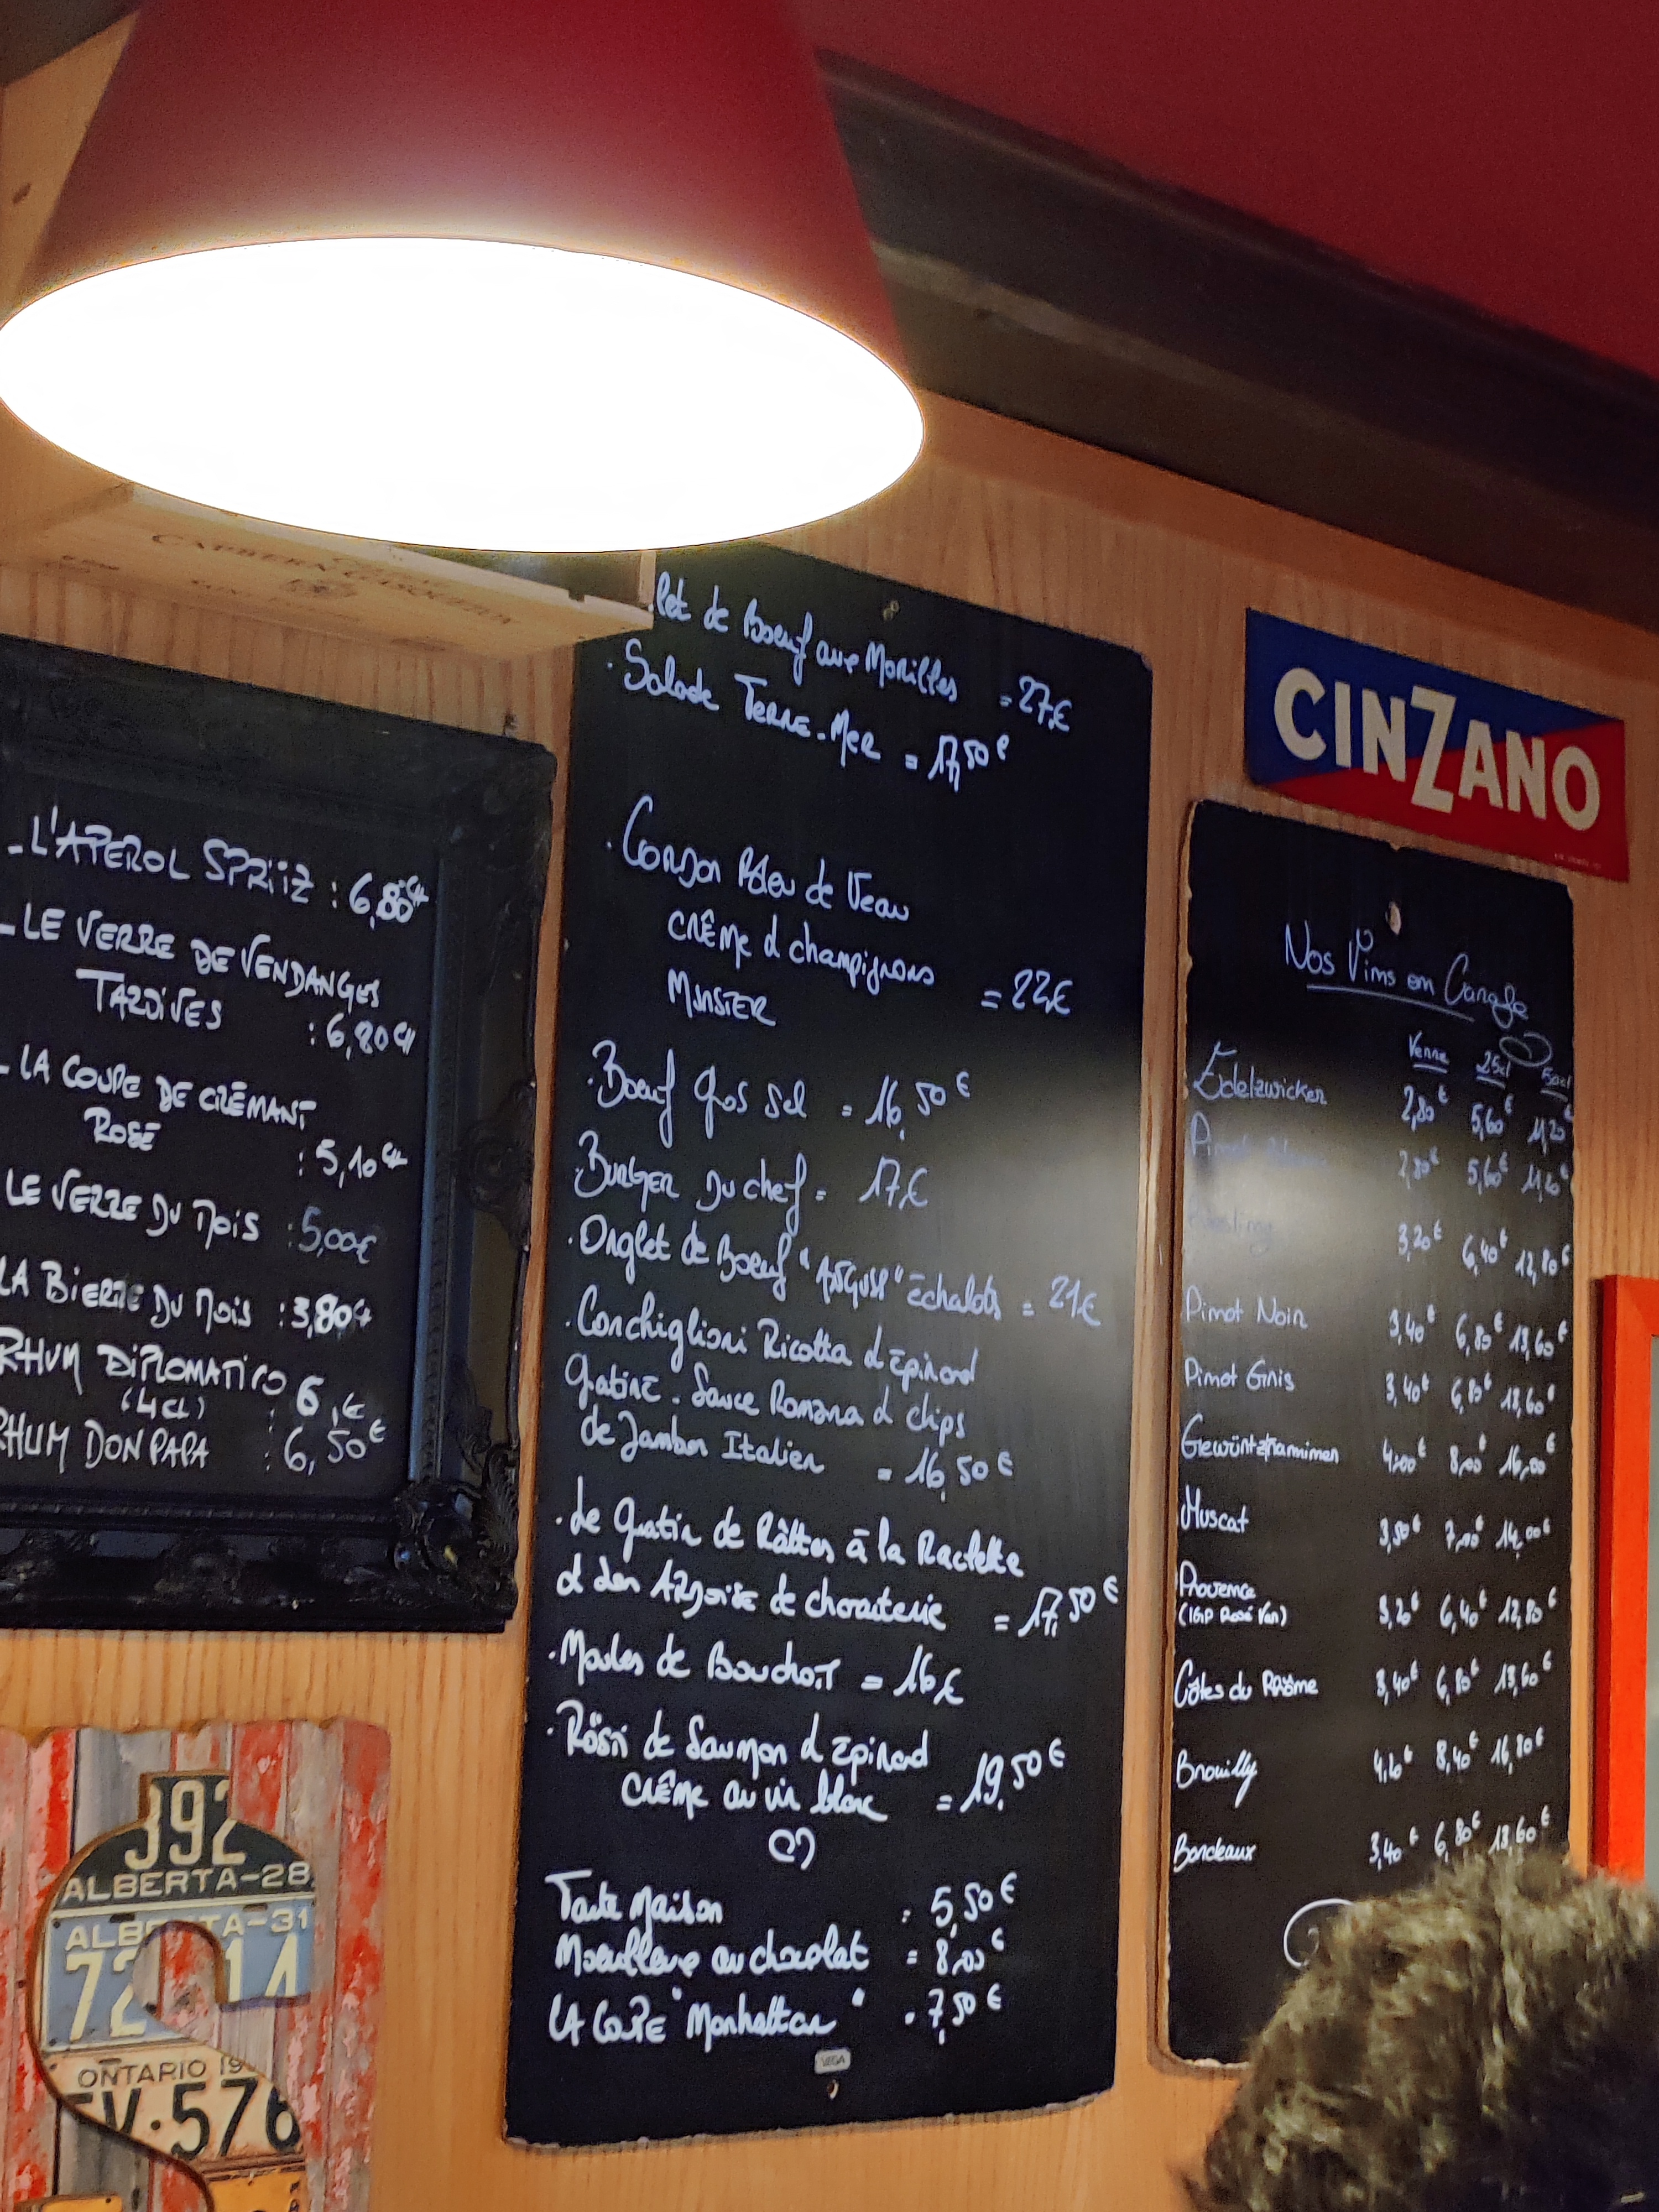 - L'APEROL SPRiTZ : 6,80€
- LE VERRE DE VENDANGES
TARDIVES : 6,80€
- LA COUPE DE CRÉMANT
ROSÉ : 5,10€
LE VERRE DU MOIS : 5,00€
LA BIERRE DU MOIS : 3,80€
RHUM DIPLOMATICO : 6,€
(4CL)
RHUM DON PAPA : 6,50€
let de Boeuf aux Morilles = 27,€
. Salade TERRE-MER = 17,50€
. Cordon Bleu de Veau
CRÊME d champignons = 22,€
MUNSTER
. Boeuf gros sel = 16,50€
. BURGER Du chef = 17€
. Onglet de Boeuf "ANGUS" échalotes = 21€
. Conchiglioni Ricotta d épinard
gratiné . Sauce Romana d chips
de Jambon Italien = 16,50€
. Le Gratin de Râttes à la Raclette
d son ARDOISE de charcuterie = 17,50€
. Moules de BouchoT = 16€
. Rösti de Saumon d épinard
CRÊME au vin blanc = 19,50€
Tarte Maison : 5,50€
Moelleux au chocolat = 8,00€
LA COUPE "Manhattan" = 7,50€
VEGA
CINZANO
Nos Vins en Carafe
Verre 25cl 50cl
Edelzwicker 2,80€ 5,60€ 11,20€
Pinot 2,80€ 5,60€ 11,20€
3,20€ 6,40€ 12,80€
Pinot Noir 3,40€ 6,80€ 13,60€
Pinot Gris 3,40€ 6,80€ 13,60€
Gewürtztraminer 4,00€ 8,00€ 16,00€
Muscat 3,50€ 7,00€ 14,00€
Provence
(IGP Rosé Var) 3,20€ 6,40€ 12,80€
Côtes du Rhône 3,40€ 6,80€ 13,60€
Brouilly 4,20€ 8,40€ 16,80€
Bordeaux 3,40€ 6,80€ 13,60€
392
ALBERTA-28
ALBERTA-31
72 14
ONTARIO 19
V·576